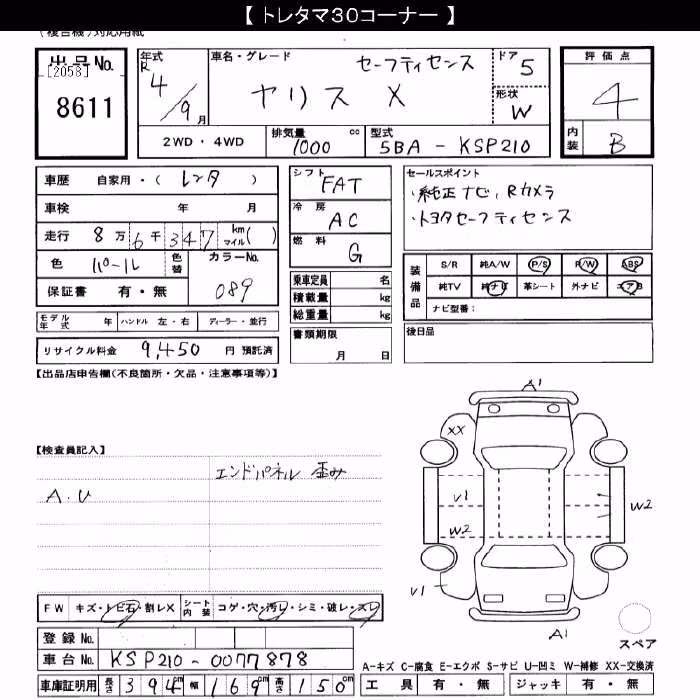 【 トレタマ30コーナー 】
(複合機)対応用紙
出品No.
[2058]
8611
年式
R
4/9月
車名・グレード
セーフティセンス
ヤリス X
ドア
5
形状
W
評価点
4
内装
B
2WD・4WD
排気量
1000 cc
型式
5BA - KSP210
車歴 自家用・( レンタ )
車検 年 月
走行 8万6千347 km マイル( )
色 パール 色替
カラーNo.
089
保証書 有・無
シフト
FAT
冷房
AC
燃料
G
セールスポイント
・純正ナビ, Rカメラ
・トヨタセーフティセンス
乗車定員 名
積載量 kg
総重量 kg
装備品
S/R 純A/W P/S P/W ABS
純TV 純ナビ 革シート 外ナビ エアB
ナビ型番:
モデル年式 年 ハンドル 左・右 ディーラー・並行
書類期限
月 日
後日品
リサイクル料金 9,450 円 預託済
【出品店申告欄(不良箇所・欠品・注意事項等)】
【検査員記入】
エンドパネル 歪み
A.U
A1
XX
V1
W2
W2
V1
A1
スペア
FW キズ・トビ石・割レX
シート内装 コゲ・穴・汚レ・シミ・破レ・スレ
登録No.
車台No. KSP210-0077878
車庫証明用 長さ 394cm 幅 169cm 高さ 150cm
A-キズ C-腐食 E-エクボ S-サビ U-凹ミ W-補修 XX-交換済
工具 有・無 ジャッキ 有・無